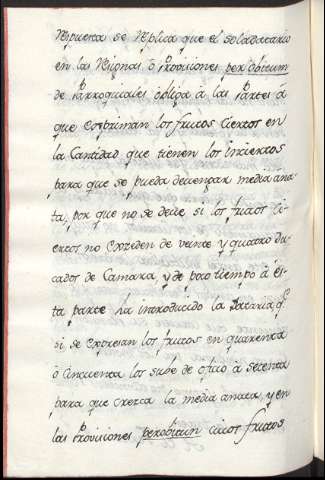 Respuesta se replica que el soladatario
en las Resignas ò Provisiones per obitum
de Parroquiales obliga à las Partes à
que expriman los frutos ciertos en
la Cantidad que tienen los inciertos
para que se pueda devengar media ana-
ta, por que no se deve, si los frutos ci-
ertos no exceden de veinte y quatro du-
cados de Camara, y de poco tiempo à es-
ta parte ha introducido la Dataria q.e
si se expresan los frutos en quarenta
ò cincuenta los sube de oficio à setenta
para que crezca la media anata, y en
las Provisiones perobitum cuios frutos